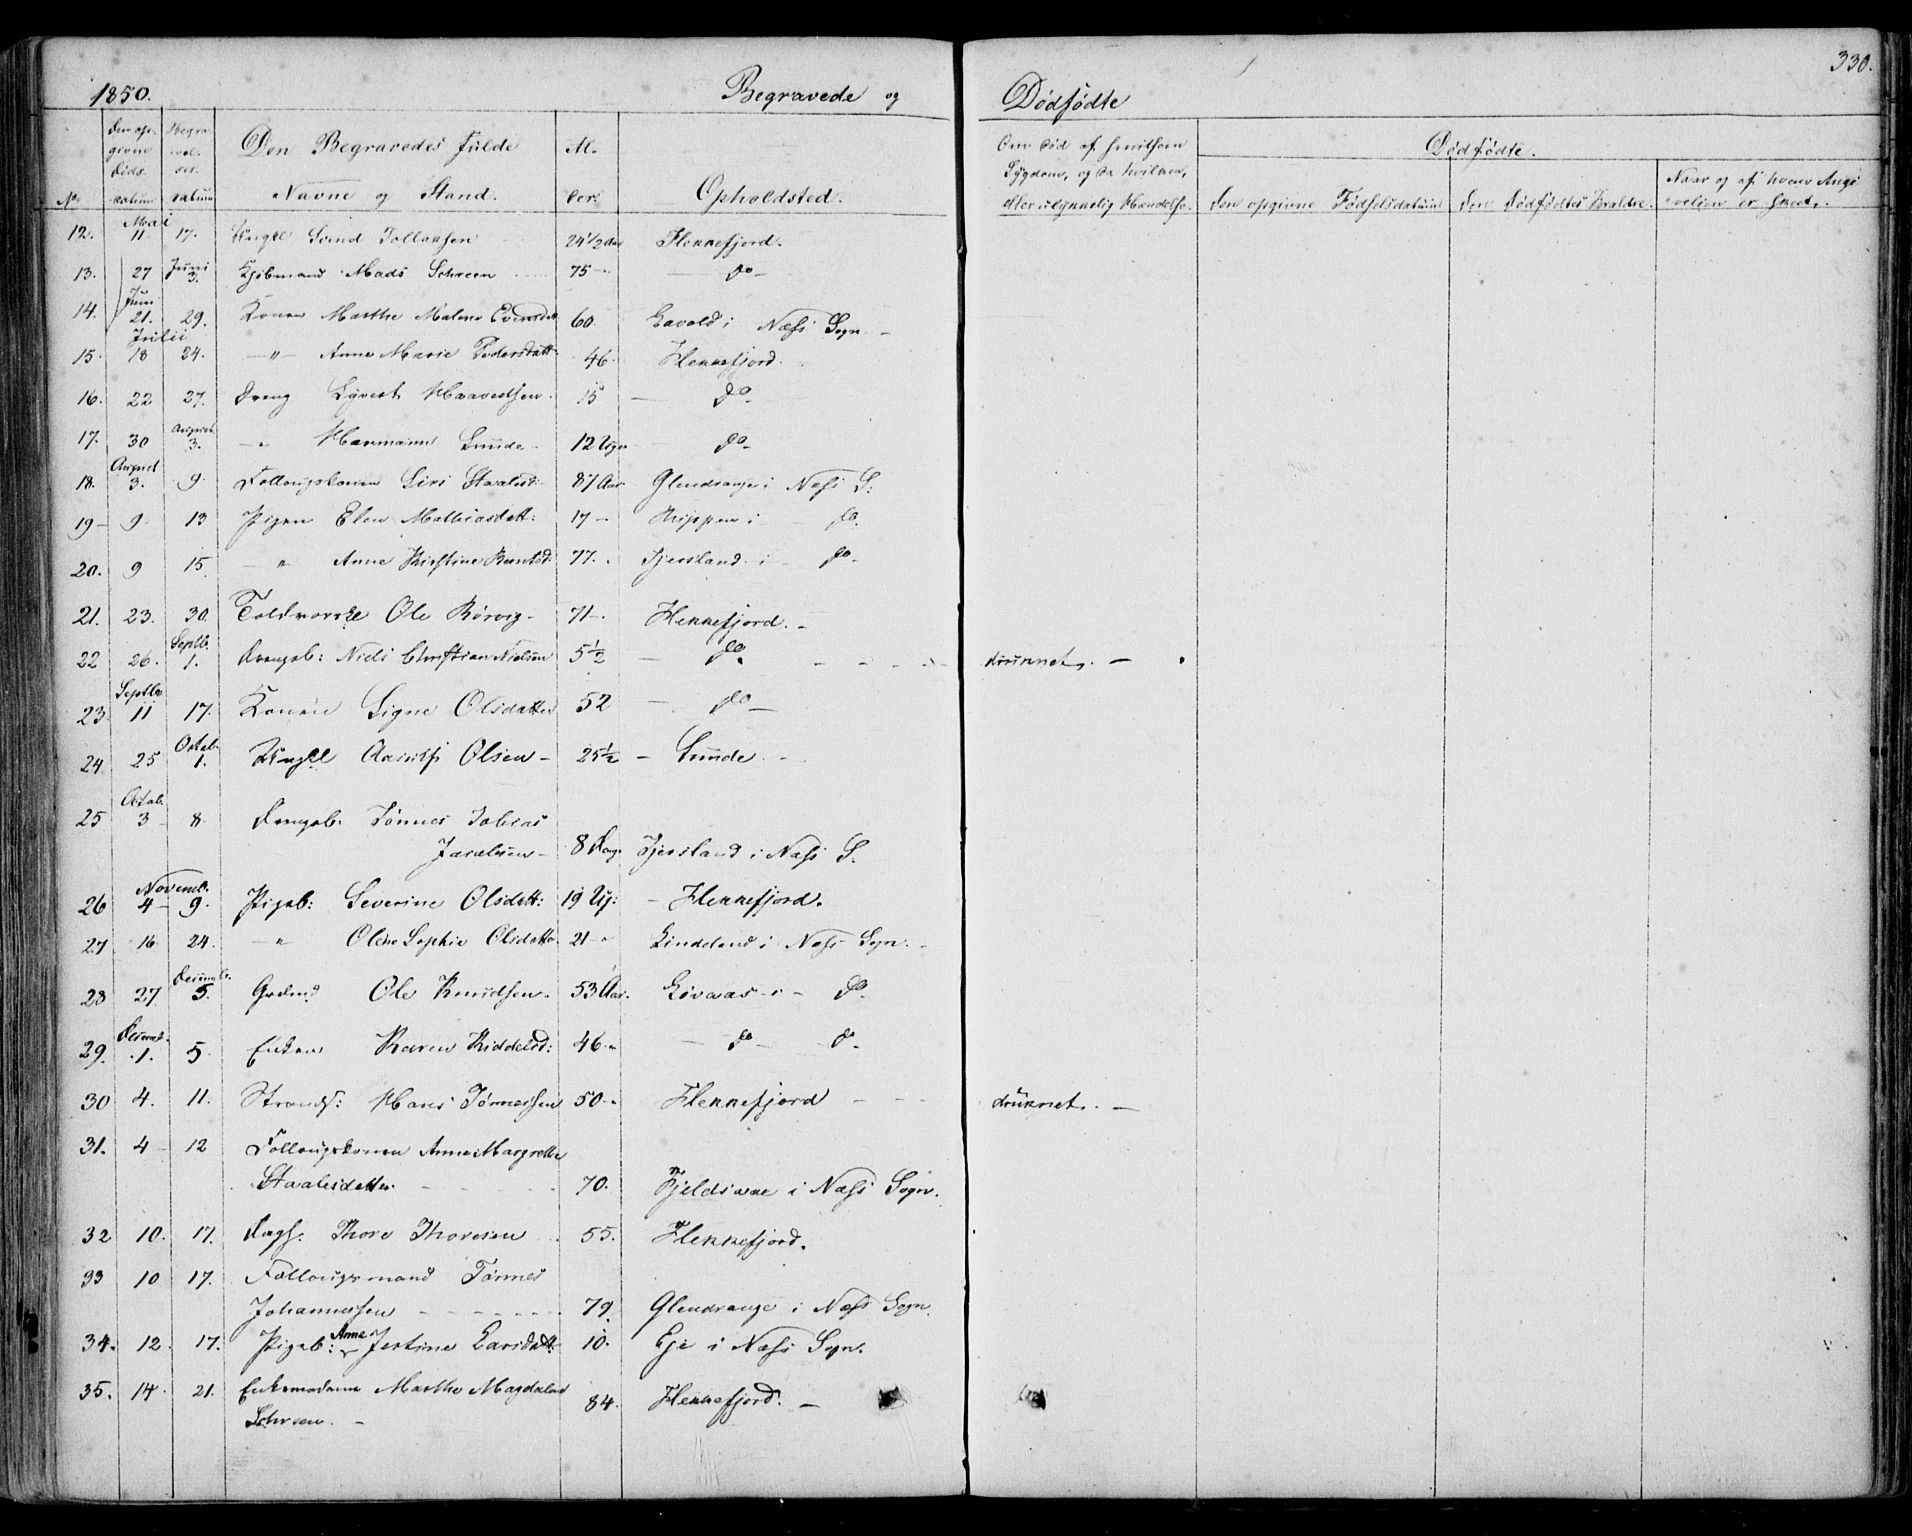 330.
1850. Begravede og Dødfødte
No. Den op- givne Døds- datum Begra- vel- ses- datum Den Begravedes fulde Navne og Stand. Al- der. Opholdsted. Om død af smitsom Sygdom, og da hvilken, eller ulykkelig Hændelse. Dødfødte. Den opgivne Fødselsdatum Den Dødfødtes Forældre. Naar og af hvem Angi- velsen er skeet.
12. Mai 11. 17. Ungkl Svend Tollaksen 24 1/2 Flekkefjord.
13. 27 Juni 3. Kjøbmand Mads Schreen 75 - do -
14. Juni 21. 29. Konen Marthe Malene Evensdatt 60. Lavold i Næss Sogn. -
15. Julii 18 24. - " - Anne Marie Pedersdatt 46. Flekkefjord.
16. 22 27. Dreng Syvert Haaverdsen 15 - do -
17. 30 August 3. - " Hermann Sunde 12 Uger - do -
18. August 3. 9. Follougskonen Siri Staalesd: 87 Aar Glendrange i Næss S:
19 - 9 - 13 Pigen Elen Mathiasdatt: 17 - Trippen i do.
20. 9 15. - " Anne Kirstine Berntsd: 77. - Fjersland i - do -
21. 23. 30. Toldvorske Ole Rørvig - 71 - Flekkefjord. -
22 26. Septb. 1. Drengeb: Niels Christian Nielsen 5 1/2 - do. druknet. -
23 Septbr 11 17. Konen Signe Olsdatter 52 - do -
24 25 Octob. 1. Ungkl Aanen Olsen - 25 1/2 - Sunde
25 Octob. 3 - 8. Drengeb. Tønnes Tobias
Jacobsen - 8 Dage Fjersland i Næss S.
26 Novemb. 4 - 9. Pigeb: Severine Olsdatt: 19 Ug: - Flekkefjord.
27. 16 24. - " Olene Sophie Olsdatter 21 - " Lindeland i Næss Sogn. -
28 27. Decemb. 5. Gaardmd Ole Knudsen. 53 Aar. Løvaas - i - do.
29. Decemb. 1. 5. Enken Karen Kiddelsd: 46 - " - do - do -
30 4. 11. Strands: Hans Tønnessen 50 - " Flekkefjord druknet. -
31. 4 - 12 Follougskonen Anne Margrethe
Staalesdatter 70. Fjeldsaae i Næss Sogn.
32 10. 17. Dags. Thore Thoresen 55. Flekkefjord.
33 10 17. Follougsmand Tønnes
Johannessen 79. Glendrange i Næss Sogn.
34. 12. 17. Pigeb: Anne Jestine Larsdatt: 10. Eje i Næss Sogn.
35. 14. 21. Enkemadame Marthe Magdalene
Schreen. - 84. Flekkefjord. -